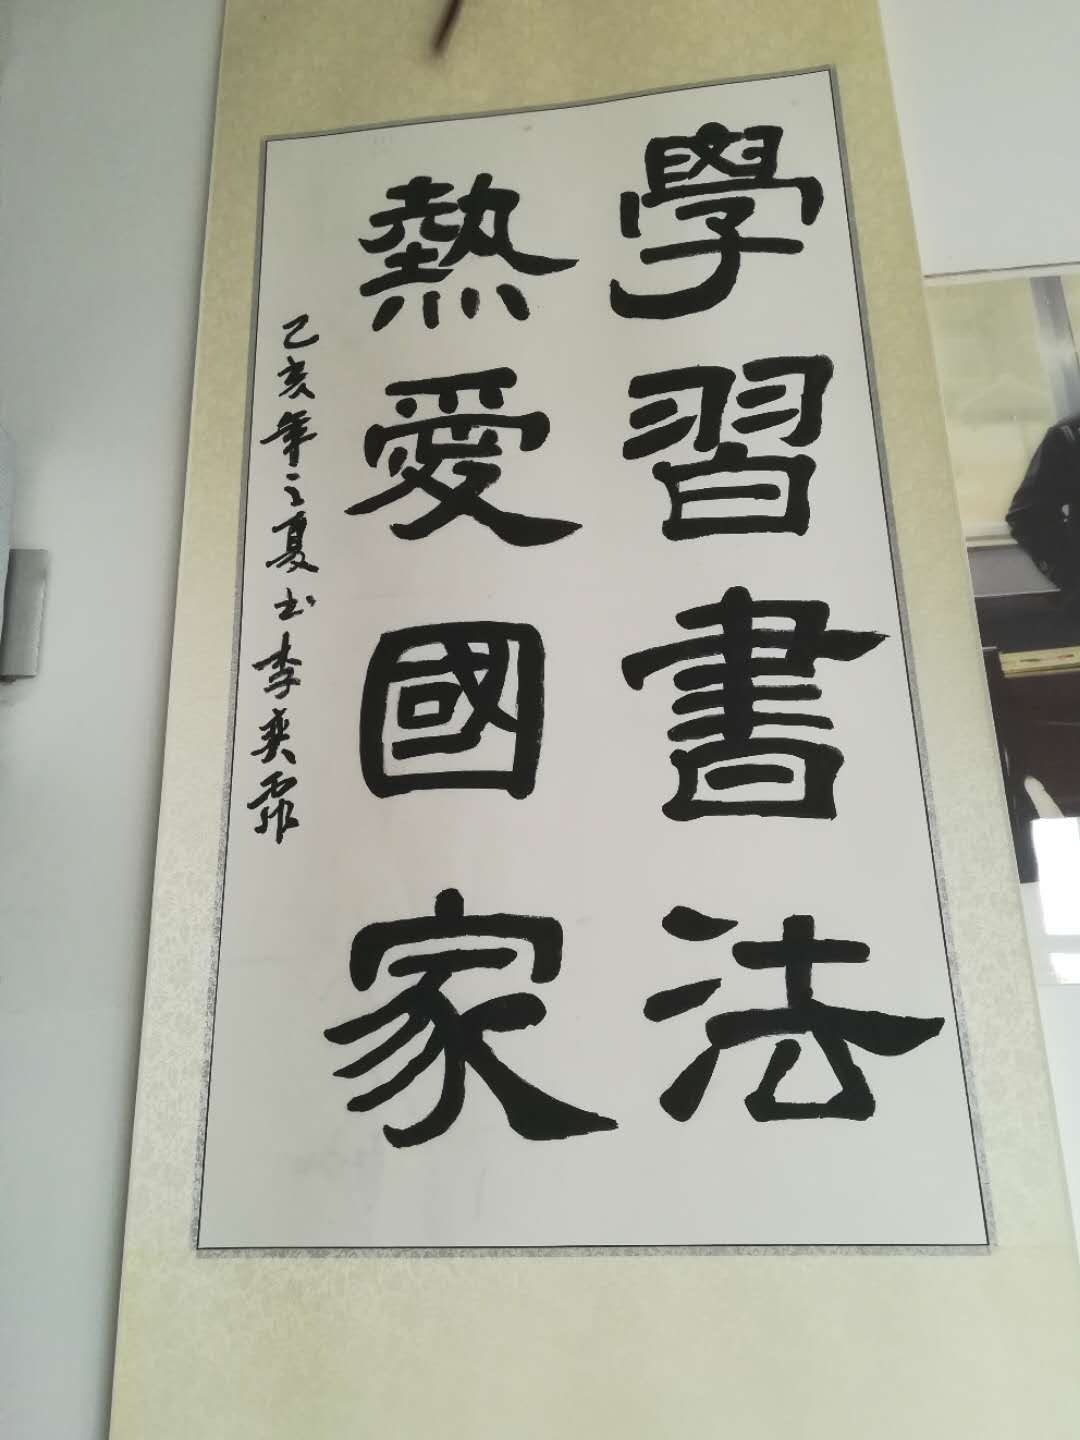 學習書法
熱愛國家
乙亥年之夏书李奕霏